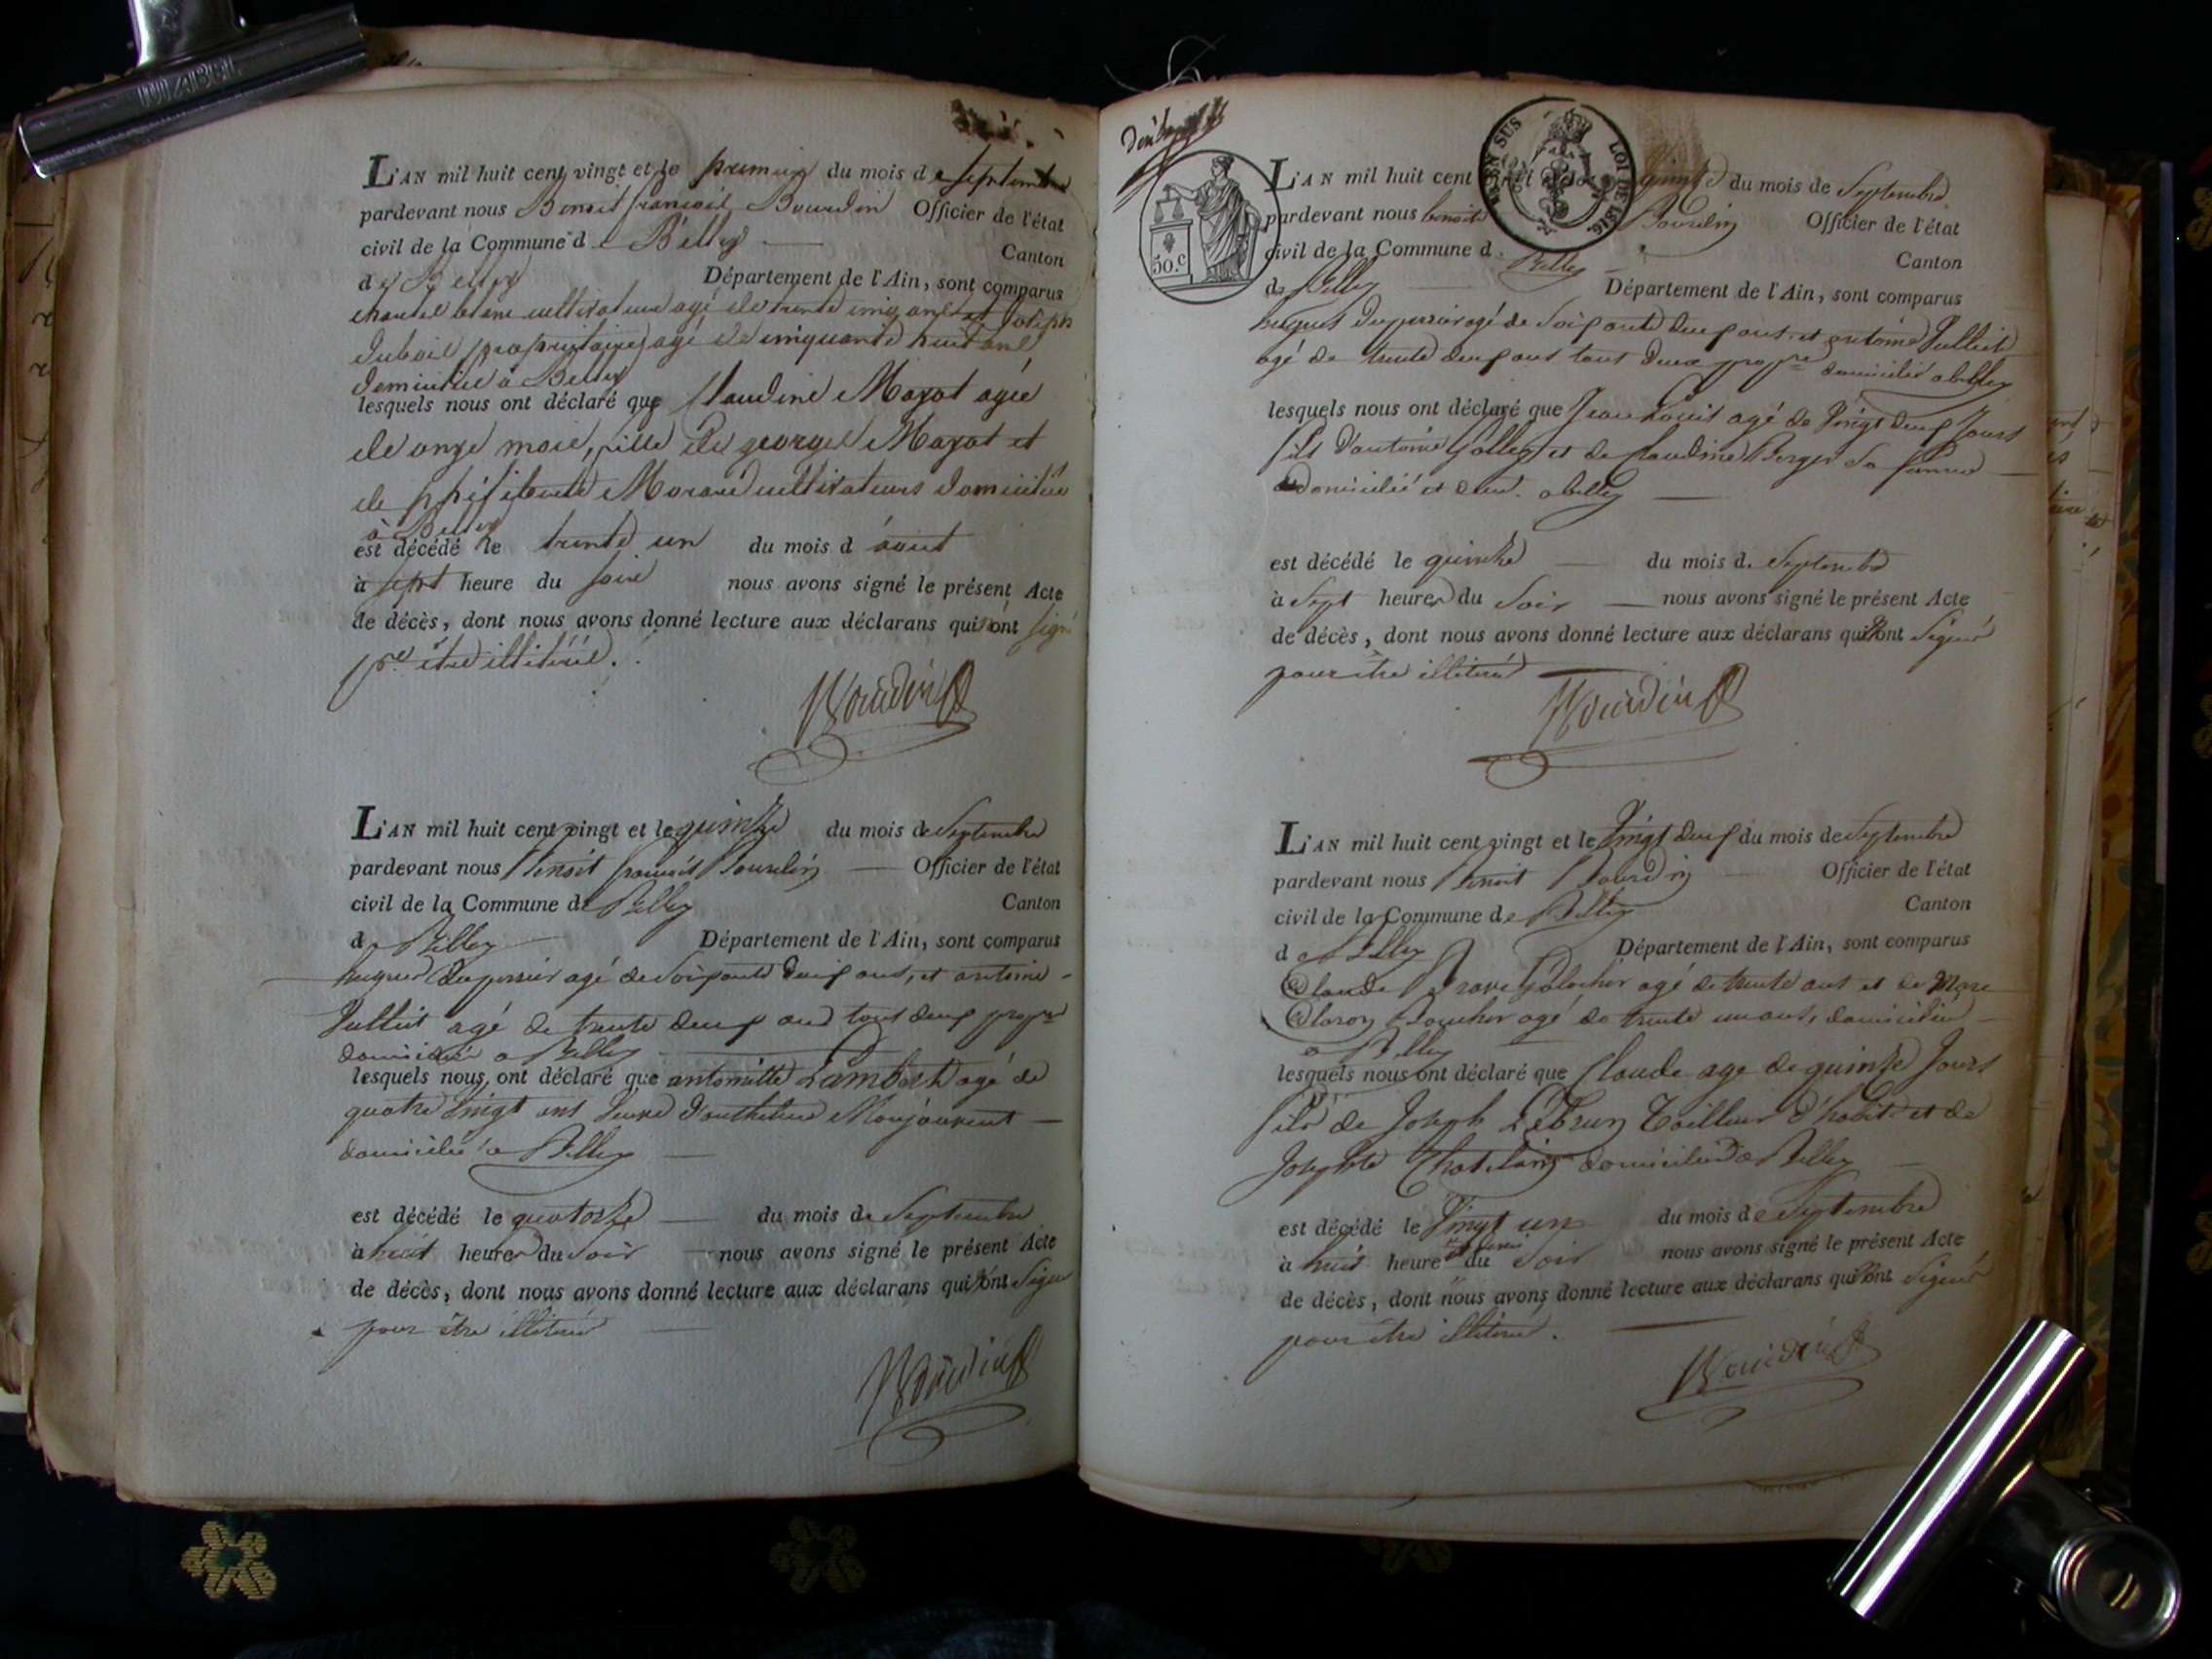 L'AN mil huit cent vingt et le premier du mois de septembre
pardevant nous Benoit françois Bourdin Officier de l'état
civil de la Commune de Belley Canton
de Belley Département de l'Ain, sont comparus
blanc cultivateur agé de trente cinq ans et Joseph
dubois propriétaire agé de cinquante huit ans
domicilié à Belley
lesquels nous ont déclaré que Claudine Mazot agée
de onze mois, fille de george Mazot et
de Morand cultivateurs domiciliés
à Belley
est décédé le trente un du mois d aout
à sept heure du soir nous avons signé le présent Acte
de décès, dont nous avons donné lecture aux déclarans qui n'ont signé
pr être illitéré.
Bourdin
L'AN mil huit cent vingt et le quinze du mois de Septembre
pardevant nous Benoit françois Bourdin Officier de l'état
civil de la Commune de Belley Canton
de Belley Département de l'Ain, sont comparus
hugues agé de Soixante deux ans, et antoine
Jullin agé de trente deux ans tout deux propre
domicilié a Belley
lesquels nous ont déclaré que antoinette Lambert agé de
quatre vingt ans veuve
domicilié a Belley
est décédé le quatorze du mois de Septembre
à huit heures du Soir nous avons signé le présent Acte
de décès, dont nous avons donné lecture aux déclarans qui n'ont Signé
pour être illitéré
Bourdin
50.c
EN SUS
LOI DE 1816.
L'AN mil huit cent quinze du mois de Septembre
pardevant nous benoit Bourdin Officier de l'état
civil de la Commune d Belley Canton
de Belley Département de l'Ain, sont comparus
hugues agé de Soixante deux ans et antoine Jullin
agé de trente deux ans tous deux propre domicilié a belley
lesquels nous ont déclaré que Jean Louis agé de Vingt deux Jours
fils d'antoine Gallay et de Claudine Berger Sa femme
domicilié et a belley
est décédé le quinze du mois d. Septembre
à Sept heures du Soir nous avons signé le présent Acte
de décès, dont nous avons donné lecture aux déclarans qui n'ont Signé
pour être illitéré
Bourdin
L'AN mil huit cent vingt et le Vingt deux du mois de Septembre
pardevant nous Benoit Bourdin Officier de l'état
civil de la Commune de Belley Canton
de Belley Département de l'Ain, sont comparus
Claude agé de trente ans et de Marc
agé de trente un ans, domicilié
a Belley
lesquels nous ont déclaré que Claude age de quinze Jours
fils de Joseph Lebrun Tailleur d'habits et de
Josephte Chatelain domicilié a Belley
est décédé le Vingt un du mois de Septembre
à huit heure et demi du Soir nous avons signé le présent Acte
de décès, dont nous avons donné lecture aux déclarans qui n'ont Signé
pour être illitéré.
Bourdin